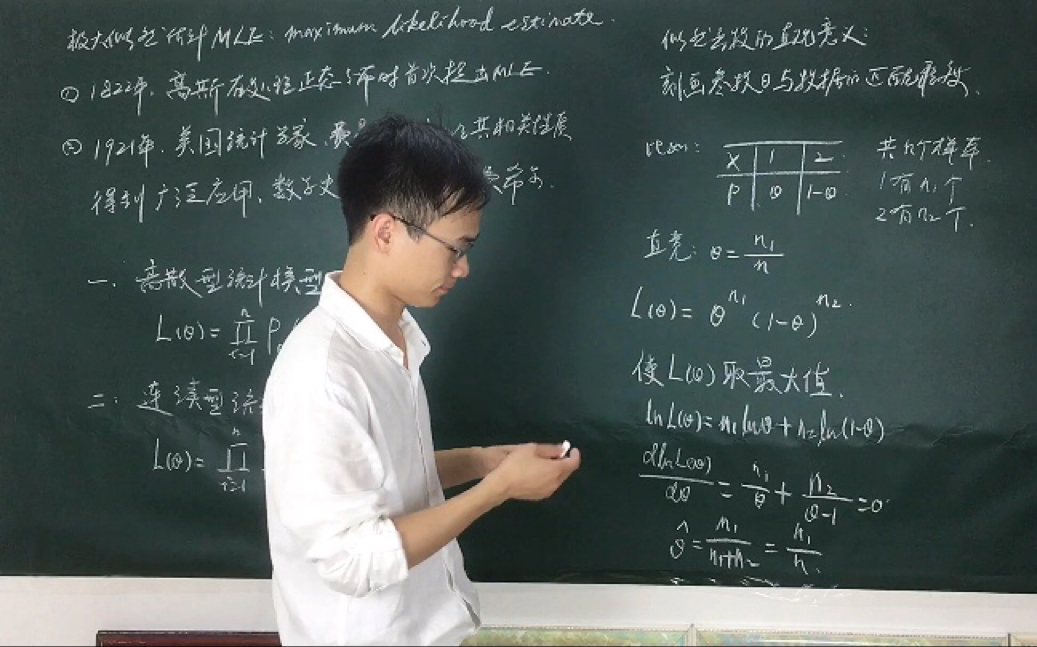 极大似然估计MLE: maximum likelihood estimate.
① 1822年, 高斯在处理正态分布时首次提出MLE.
② 1921年, 美国统计学家, 其相关性质
得到广泛应用, 数学史 费希尔.
一. 离散型统计模型
L(θ)= ∏ᵢ₌₁ⁿ P
二. 连续型统
L(θ)= ∏ᵢ₌₁ⁿ
似然函数的直观意义:
刻画参数θ与数据的匹配程度.
比如:
X 1 2
P θ 1-θ
共n个样本.
1有n₁个
2有n₂个.
直觉: θ = n₁/n
L(θ)= θ^n₁ (1-θ)^n₂.
使L(θ)取最大值.
lnL(θ)= n₁lnθ + n₂ln(1-θ)
dlnL(θ)/dθ = n₁/θ + n₂/(θ-1) =0
θ̂ = n₁/(n₁+n₂) = n₁/n.